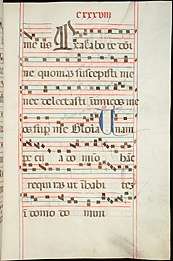 cxxxviii
me us Exaltabo te domi
ne quoniam suscepisti me
nec delectasti inimicos me
os sup me Gloria Unam
te
requiram ut inhabi te
in domo do mini